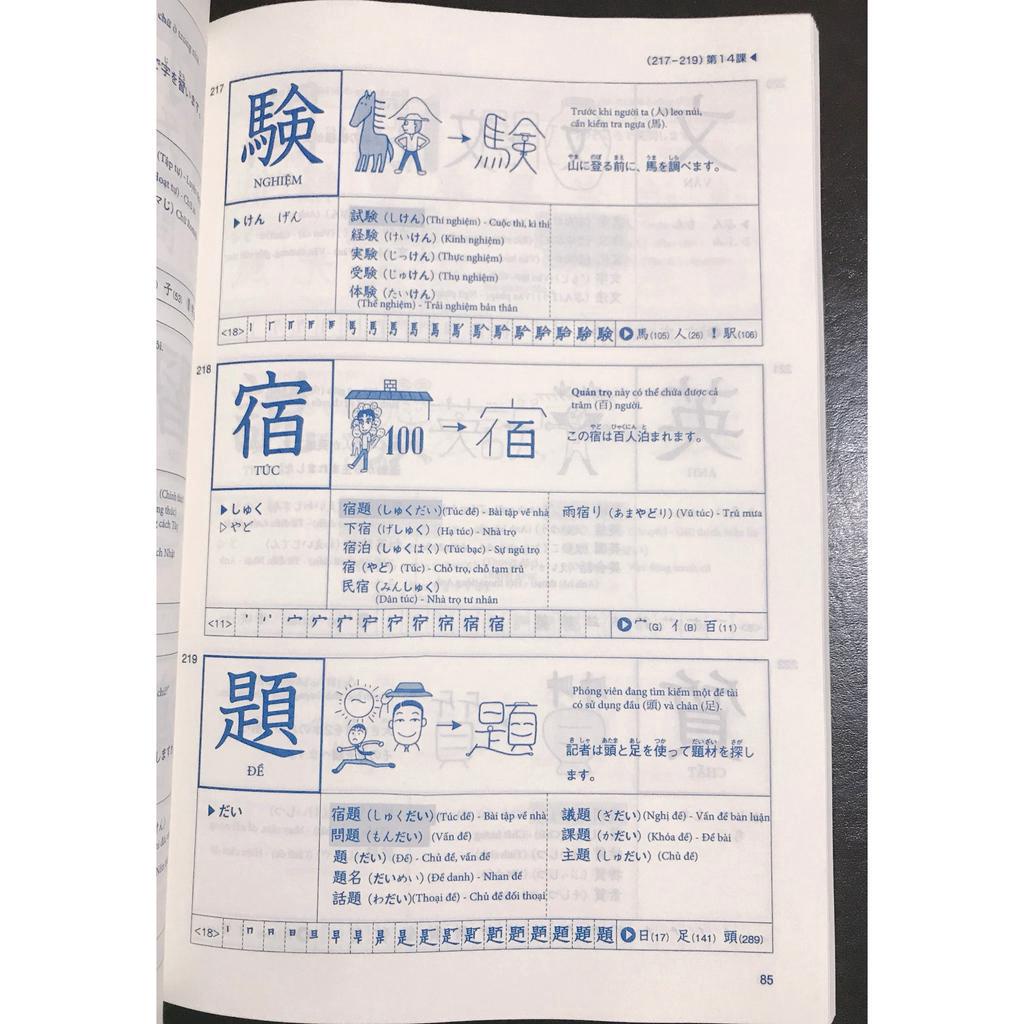 (217-219) 第14課◀
217
験
NGHIỆM
Trước khi người ta (人) leo núi,
cần kiểm tra ngựa (馬).
やま のぼ まえ うま しら
山に登る前に、馬を調べます。
▶けん げん
試験 (しけん)(Thí nghiệm) - Cuộc thi, kì thi
経験 (けいけん) (Kinh nghiệm)
実験 (じっけん) (Thực nghiệm)
受験 (じゅけん) (Thụ nghiệm)
体験 (たいけん)
(Thể nghiệm) - Trải nghiệm bản thân
<18>
馬(105) 人(26) ! 駅(106)
218
宿
TÚC
100
宿
Quán trọ này có thể chứa được cả
trăm (百) người.
やど ひゃくにん と
この宿は百人泊まれます。
▶しゅく
▷やど
宿題 (しゅくだい)(Túc đề) - Bài tập về nhà
下宿 (げしゅく) (Hạ túc) - Nhà trọ
宿泊 (しゅくはく) (Túc bạc) - Sự ngủ trọ
宿 (やど) (Túc) - Chỗ trọ, chỗ tạm trú
民宿 (みんしゅく)
(Dân túc) - Nhà trọ tư nhân
雨宿り (あまやどり) (Vũ túc) - Trú mưa
<11>
宀(G) イ(B) 百(11)
219
題
ĐỀ
題
Phóng viên đang tìm kiếm một đề tài
có sử dụng đầu (頭) và chân (足).
きしゃ あたま あし つか だいざい さが
記者は頭と足を使って題材を探し
ます。
▶だい
宿題 (しゅくだい) (Túc đề) - Bài tập về nhà
問題 (もんだい) (Vấn đề)
題 (だい) (Đề) - Chủ đề, vấn đề
題名 (だいめい) (Đề danh) - Nhan đề
話題 (わだい)(Thoại đề) - Chủ đề đối thoại
議題 (ぎだい) (Nghị đề) - Vấn đề bàn luận
課題 (かだい) (Khóa đề) - Đề bài
主題 (しゅだい) (Chủ đề)
<18>
日(17) 足(141) 頭(289)
85